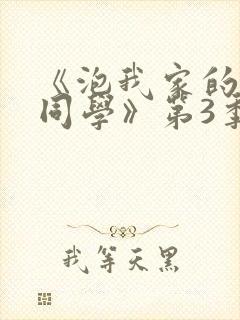 《泡我家的
同學》第3季
我等天黑